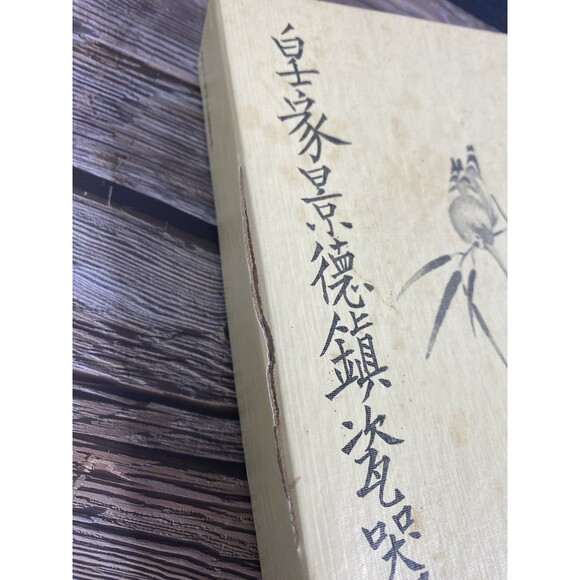 皇家景德鎮瓷器